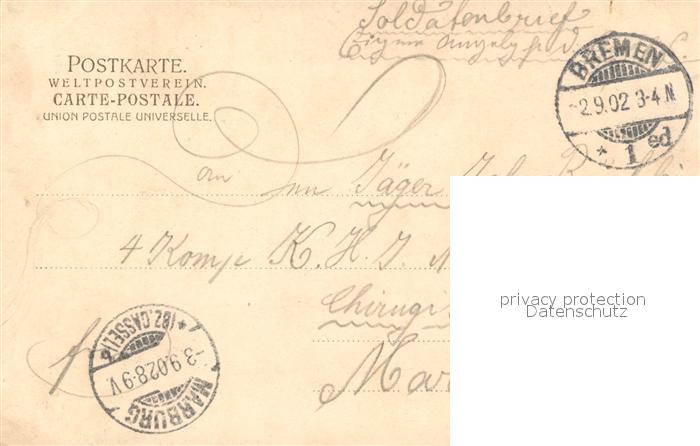 Soldatenbrief
Eigene
POSTKARTE.
WELTPOSTVEREIN.
CARTE-POSTALE.
UNION POSTALE UNIVERSELLE.
BREMEN
-2.9.02 3-4 N
* 1 ed
an den Jäger
4 Komp K. H. J.
Chirugi
Mar
MARBURG
-3.9.02 8-9 V.
* (BZ. CASSEL) b
privacy protection
Datenschutz